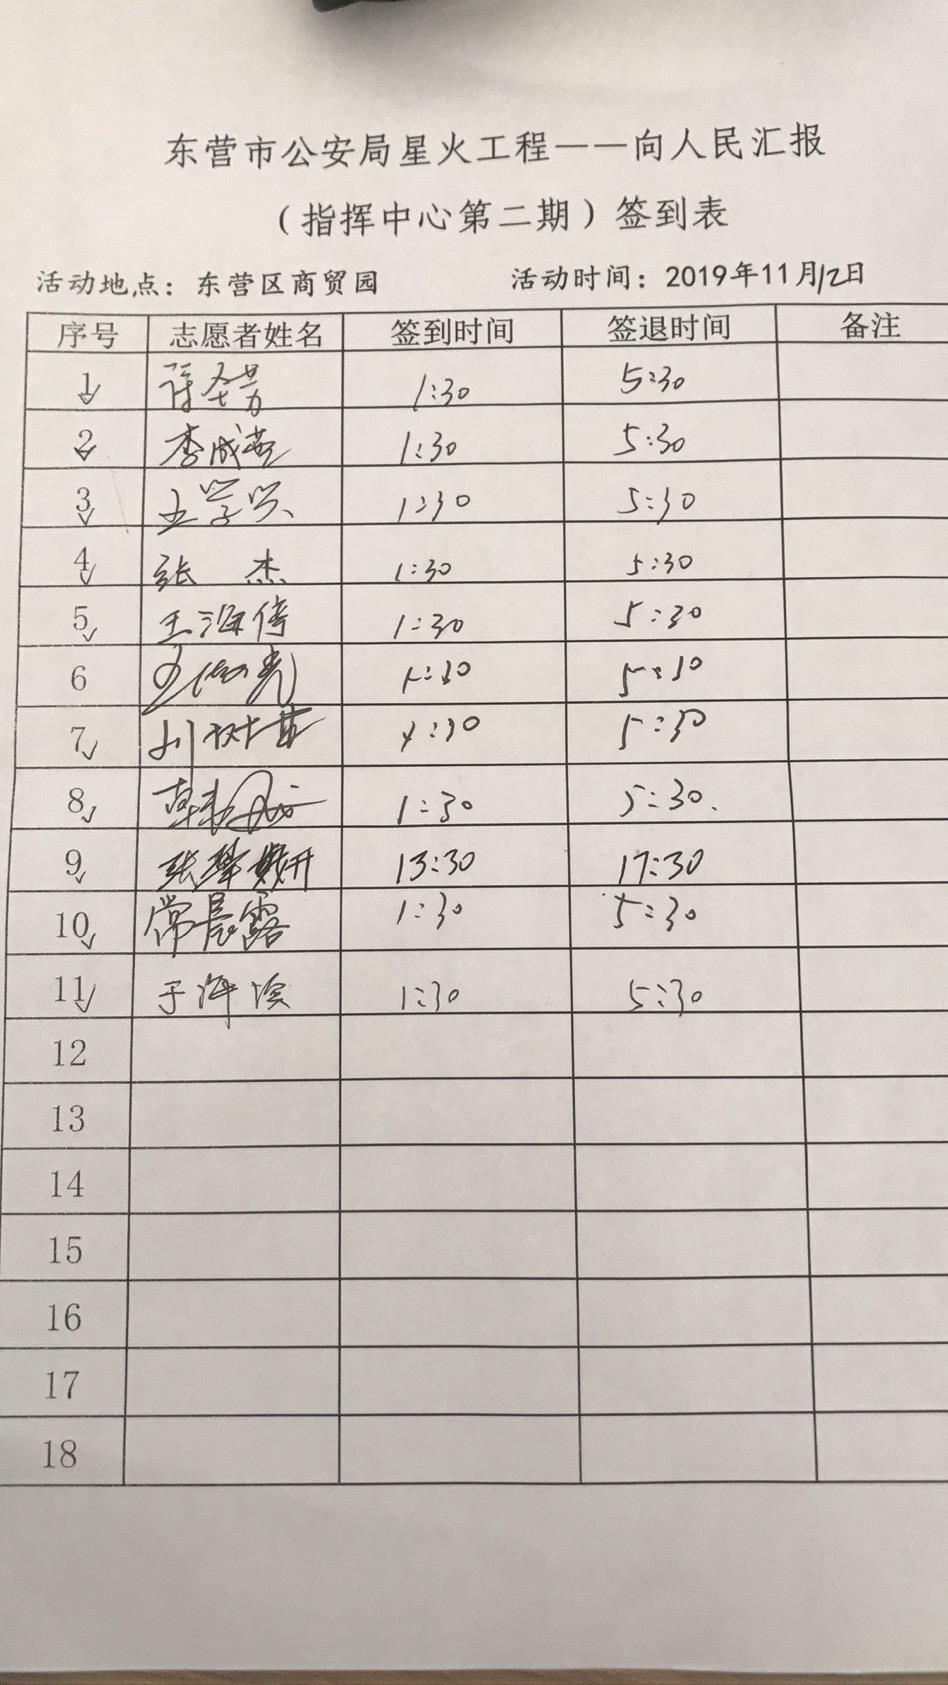 东营市公安局星火工程——向人民汇报
（指挥中心第二期）签到表
活动地点：东营区商贸园 活动时间：2019年11月12日
序号 志愿者姓名 签到时间 签退时间 备注
1 1:30 5:30
2 李成英 1:30 5:30
3 王学兴 1:30 5:30
4 张杰 1:30 5:30
5 王海倩 1:30 5:30
6 1:30 5:30
7 1:30 5:30
8 1:30 5:30.
9 13:30 17:30
10 常晨露 1:30 5:30
11 于海滨 1:30 5:30
12
13
14
15
16
17
18